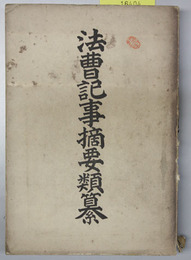 法曹記事摘要類纂